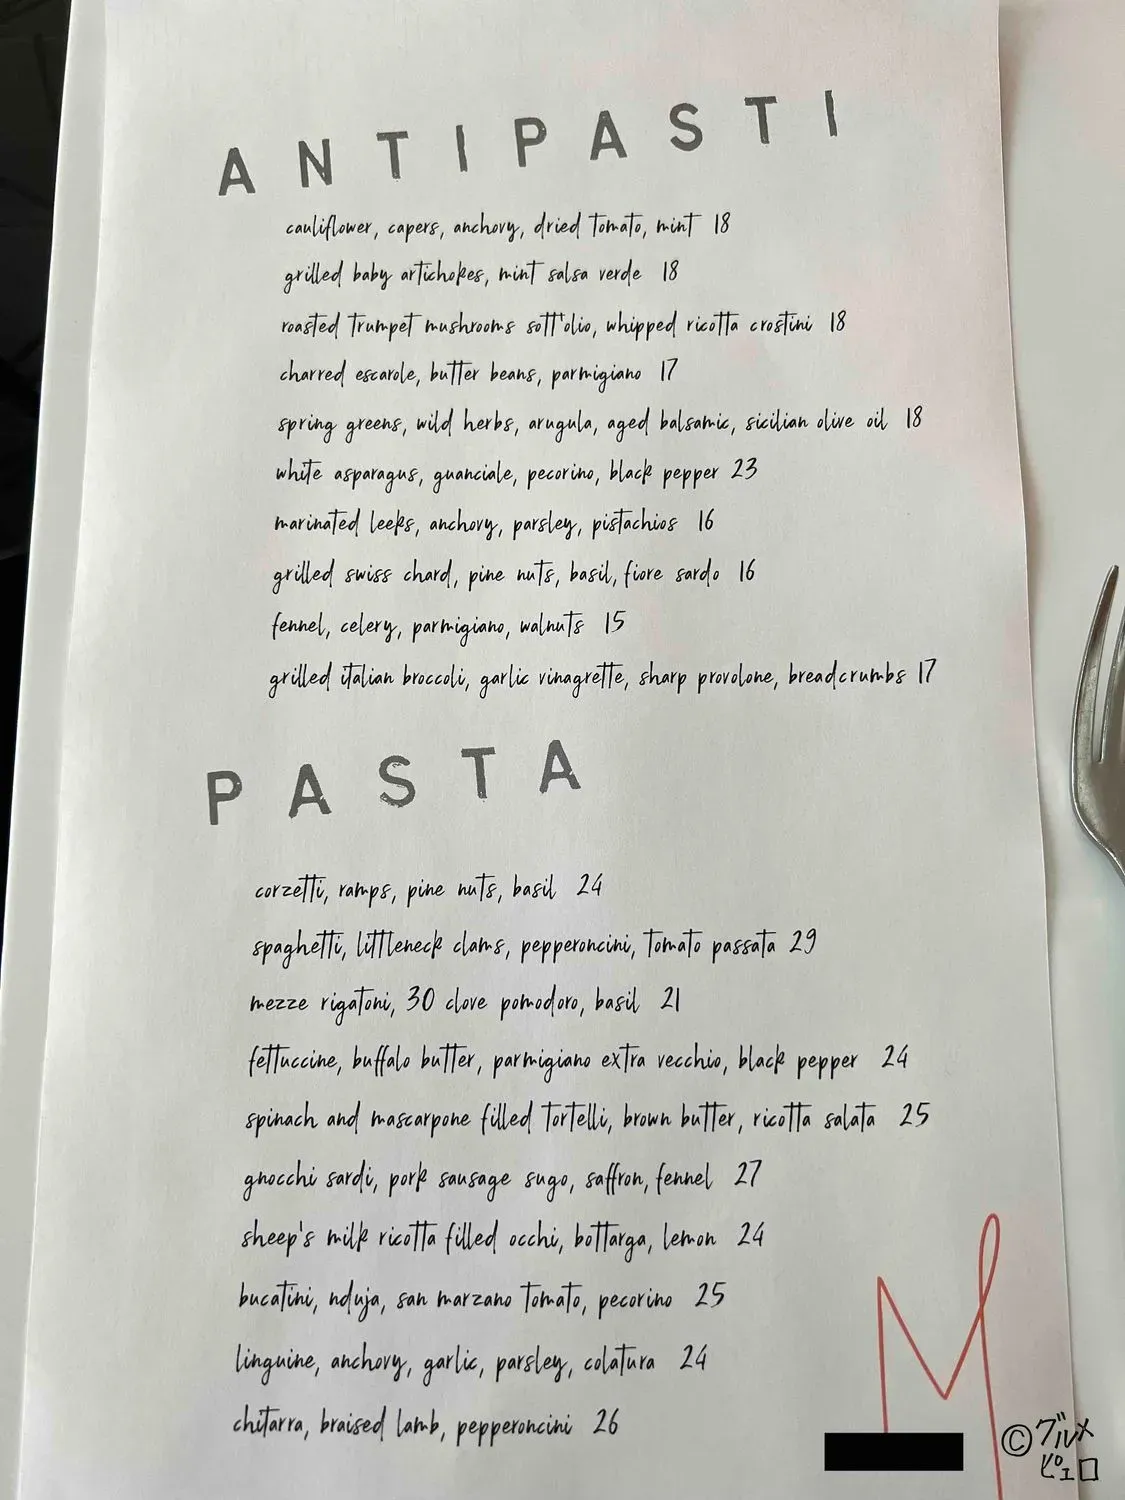 ANTIPASTI
cauliflower, capers, anchovy, dried tomato, mint 18
grilled baby artichokes, mint salsa verde 18
roasted trumpet mushrooms sott'olio, whipped ricotta crostini 18
charred escarole, butter beans, parmigiano 17
spring greens, wild herbs, arugula, aged balsamic, sicilian olive oil 18
white asparagus, guanciale, pecorino, black pepper 23
marinated leeks, anchovy, parsley, pistachios 16
grilled swiss chard, pine nuts, basil, fiore sardo 16
fennel, celery, parmigiano, walnuts 15
grilled italian broccoli, garlic vinagrette, sharp provolone, breadcrumbs 17
PASTA
corzetti, ramps, pine nuts, basil 24
spaghetti, littleneck clams, pepperoncini, tomato passata 29
mezze rigatoni, 30 clove pomodoro, basil 21
fettuccine, buffalo butter, parmigiano extra vecchio, black pepper 24
spinach and mascarpone filled tortelli, brown butter, ricotta salata 25
gnocchi sardi, pork sausage sugo, saffron, fennel 27
sheep's milk ricotta filled occhi, bottarga, lemon 24
bucatini, nduja, san marzano tomato, pecorino 25
linguine, anchovy, garlic, parsley, colatura 24
chitarra, braised lamb, pepperoncini 26
M
©グルメ
ピエロ